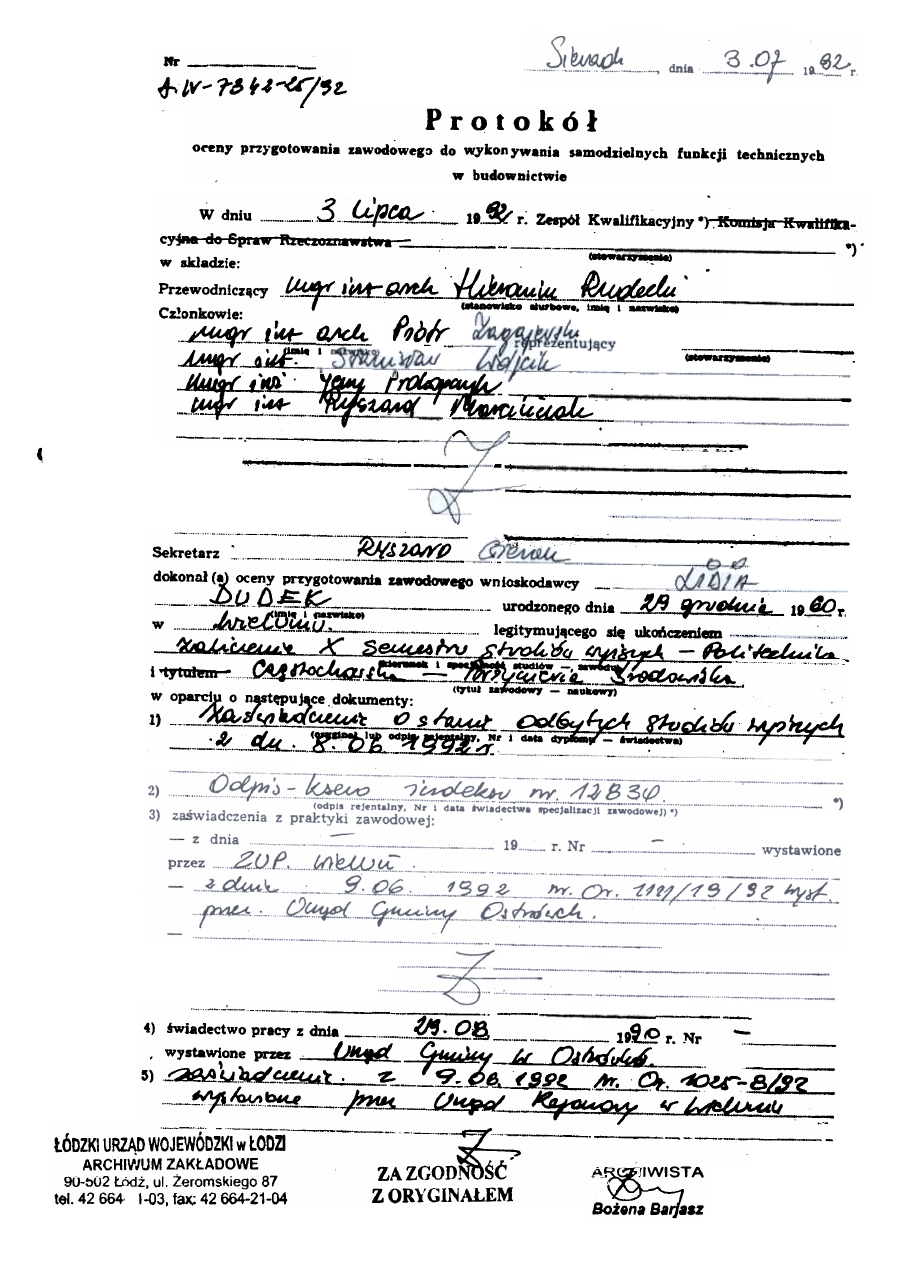 Nr
A.IV-7342-25/92
Sieradz, dnia 3.07 1992 r.
Protokół
oceny przygotowania zawodowego do wykonywania samodzielnych funkcji technicznych
w budownictwie
W dniu 3 lipca 1992 r. Zespół Kwalifikacyjny *) Komisja Kwalifika-
cyjna do Spraw Rzeczoznawstwa *)
(stowarzyszenie)
w składzie:
Przewodniczący mgr inż arch Hieronim Rudecki
(stanowisko służbowe, imię i nazwisko)
Członkowie:
mgr inż arch Piotr Zagajewski
(imię i nazwisko) reprezentujący (stowarzyszenie)
mgr inż. Stanisław Wójcik
mgr inż Jerzy
mgr inż Ryszard Marciniak
Sekretarz RYSZARD
dokonał (a) oceny przygotowania zawodowego wnioskodawcy LIDIA
DUDEK urodzonego dnia 29 grudnia 1960 r.
(imię i nazwisko)
w Wieluniu. legitymującego się ukończeniem
zaliczenie X semestru studiów wyższych – Politechnika
(kierunek i specjalność studiów — zawodu)
i tytułem Częstochowska – Inżynieria Środowiska
(tytuł zawodowy — naukowy)
w oparciu o następujące dokumenty:
1) Zaświadczenie o stanie odbytych studiów wyższych
(oryginał lub odpis rejentalny, Nr i data dyplomu — świadectwa)
z dn. 8.06 1992 r
2) Odpis-ksero indeksu nr. 12834 *)
(odpis rejentalny, Nr i data świadectwa specjalizacji zawodowej) *)
3) zaświadczenia z praktyki zawodowej:
— z dnia – 19 r. Nr – wystawione
przez ZUP. Wieluń.
— z dnia 9.06. 1992 nr. Or. 1121/19/92 wyst.
przez. Urząd Gminy Ostrówek.
—
4) świadectwo pracy z dnia 29.08 1990 r. Nr –
wystawione przez Urząd Gminy w Ostrówku.
5) zaświadczenie. z 9.06. 1992 nr. Or. 1025-8/92
wystawione przez Urząd Rejonowy w Wieluniu
ŁÓDZKI URZĄD WOJEWÓDZKI w ŁODZI
ARCHIWUM ZAKŁADOWE
90-502 Łódź, ul. Żeromskiego 87
tel. 42 664 1-03, fax: 42 664-21-04
ZA ZGODNOŚĆ
Z ORYGINAŁEM
ARCHIWISTA
Bożena Barjasz